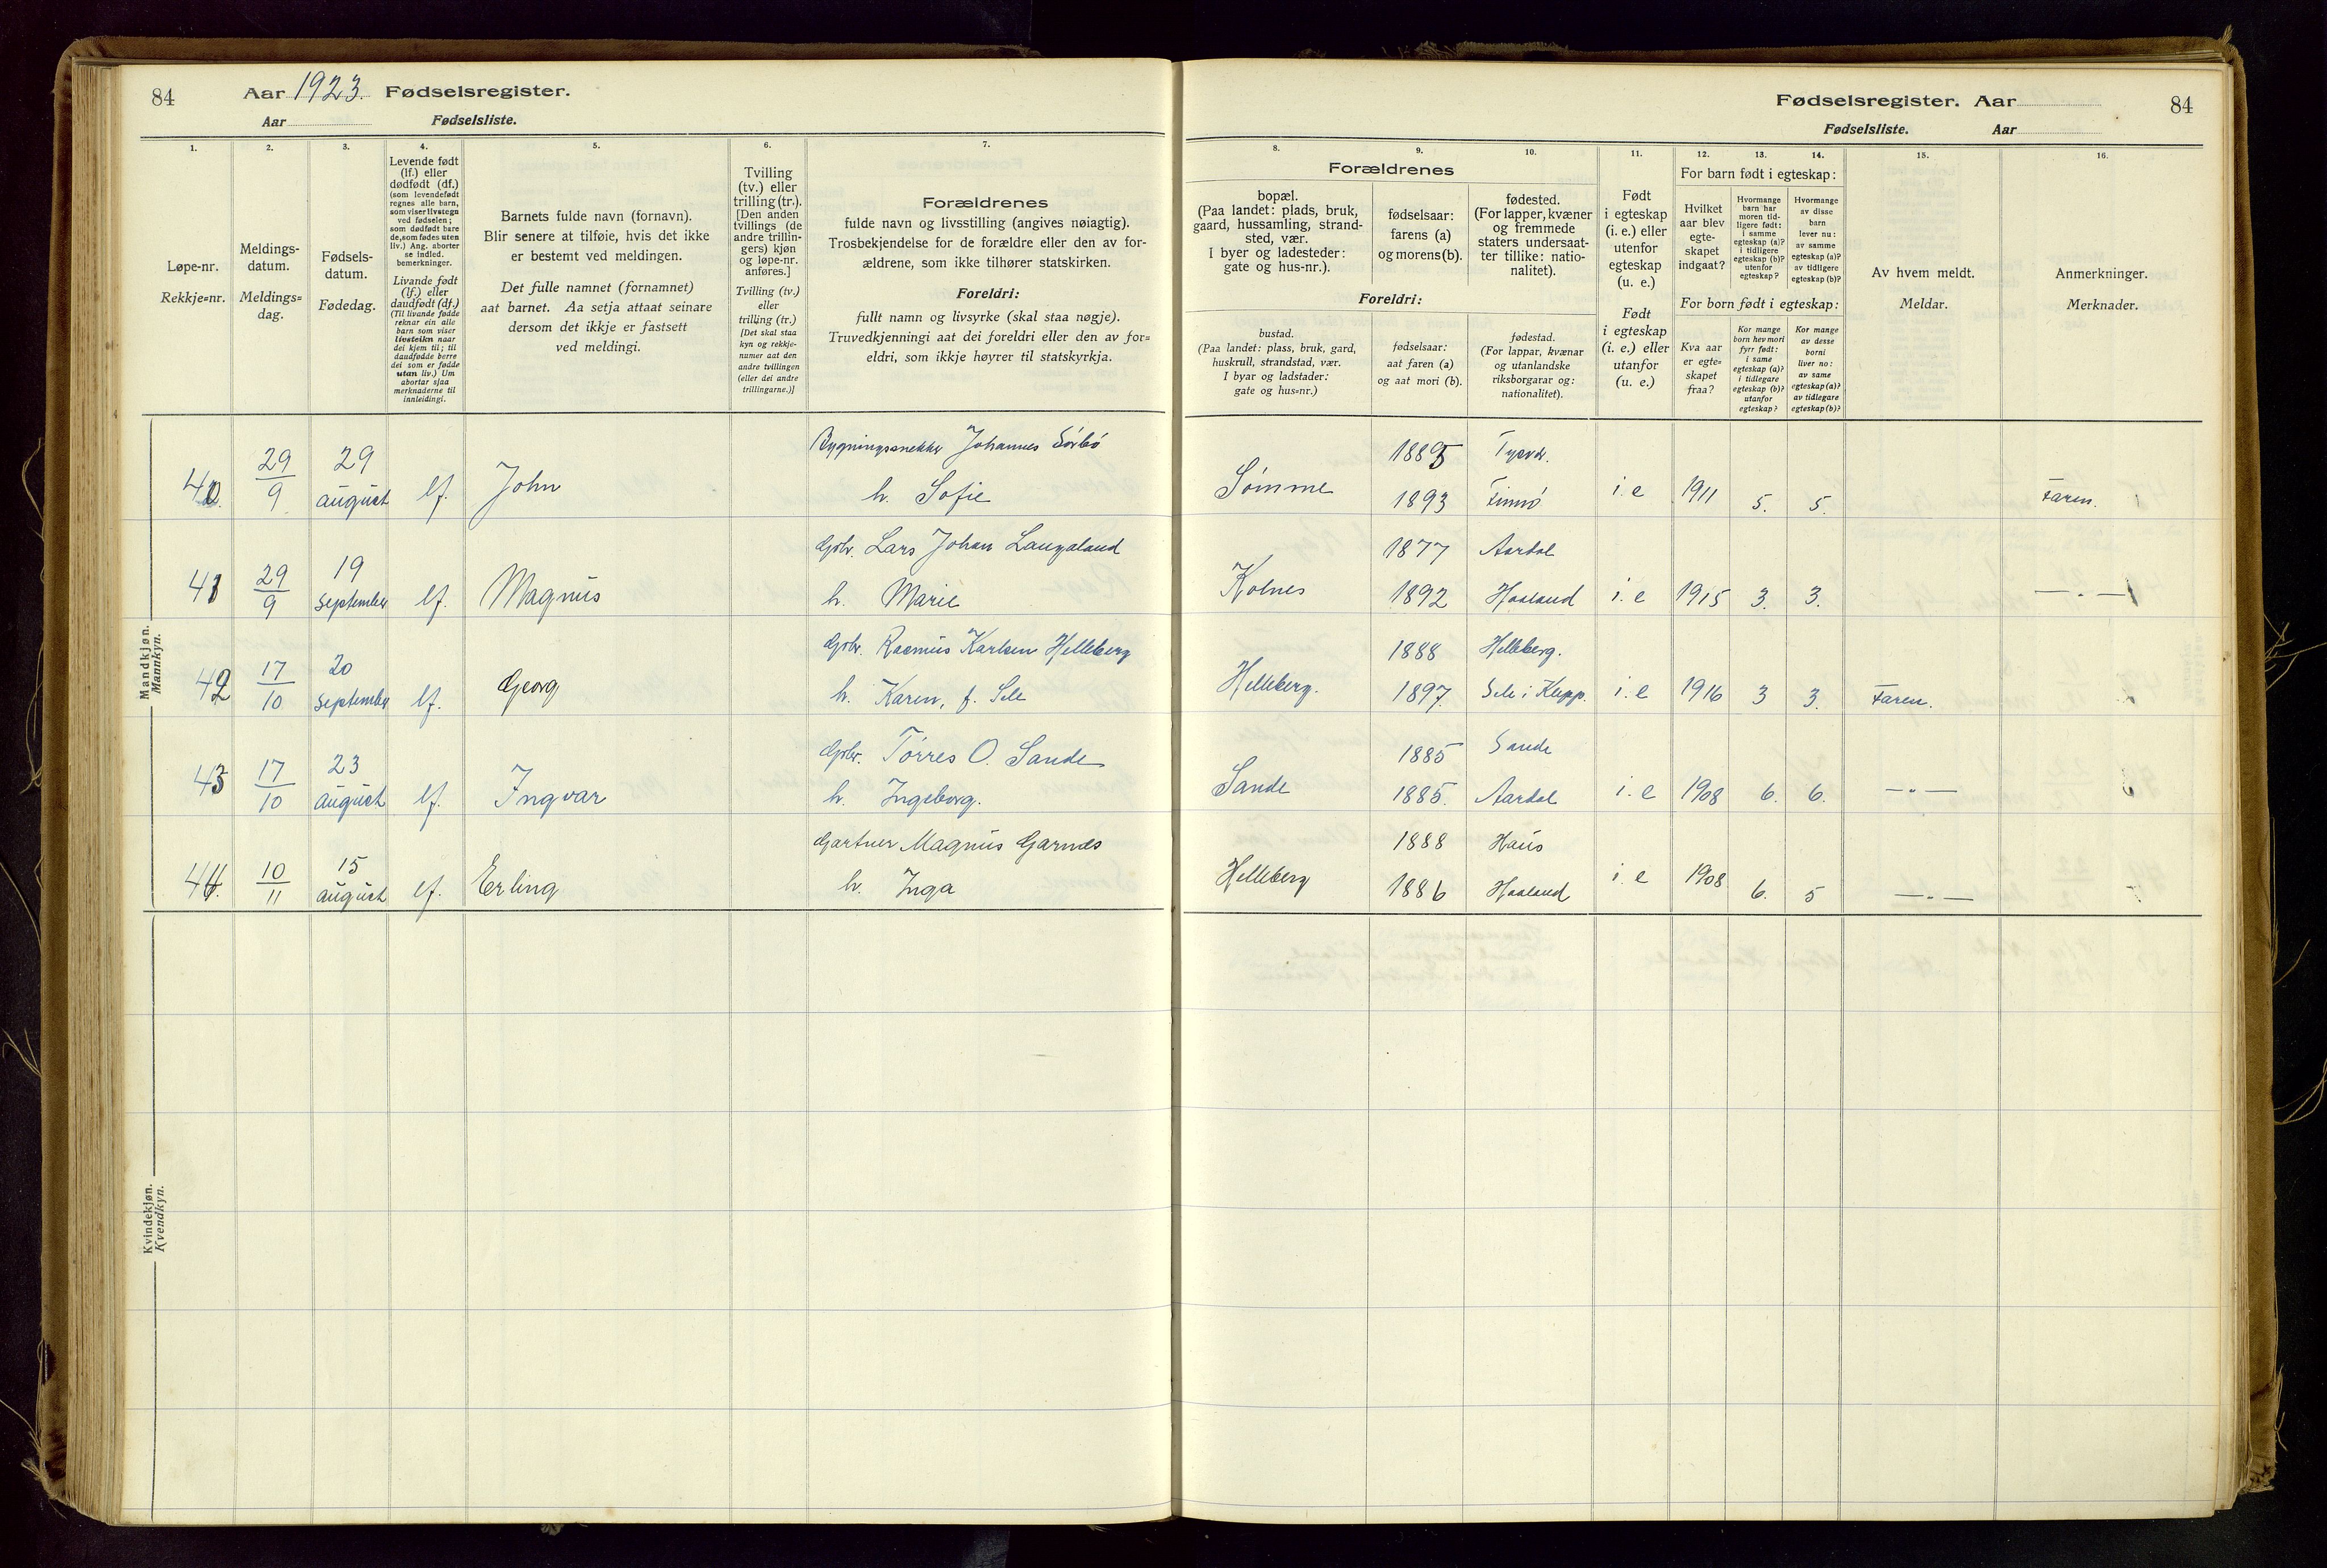 84 Aar 1923. Fødselsregister.
Aar Fødselsliste.
1. 2. 3. 4. 5. 6. 7.
Løpe-nr.
Rekkje=nr.
Meldings-
datum.
Meldings=
dag.
Fødsels-
datum.
Fødedag.
Levende født
(lf.) eller
dødfødt (df.)
(som levendefødt
regnes alle barn,
som viser livstegn
ved fødselen;
som dødfødt bare
de, som fødes uten
liv.) Ang. aborter
se indled.
bemerkninger.
Livande født
(lf.) eller
daudfødt (df.)
(Til livande fødde
reknar ein alle
barn som viser
livsteikn naar
dei kjem til; til
daudfødde berre
dei som er fødde
utan liv.) Um
abortar sjaa
merknaderne til
innleidingi.
Barnets fulde navn (fornavn).
Blir senere at tilføie, hvis det ikke
er bestemt ved meldingen.
Det fulle namnet (fornamnet)
aat barnet. Aa setja attaat seinare
dersom det ikkje er fastsett
ved meldingi.
Tvilling
(tv.) eller
trilling (tr.).
[Den anden
tvillings (de
andre trillin-
gers) kjøn
og løpe-nr.
anføres.]
Tvilling (tv.)
eller
trilling (tr.)
[Det skal staa
kyn og rekkje-
numer aat den
andre tvillingen
(eller dei andre
trillingarne.)]
Forældrenes
fulde navn og livsstilling (angives nøiagtig).
Trosbekjendelse for de forældre eller den av for-
ældrene, som ikke tilhører statskirken.
Foreldri:
fullt namn og livsyrke (skal staa nøgje).
Truvedkjenningi aat dei foreldri eller den av for=
eldri, som ikkje høyrer til statskyrkja.
Mandkjøn.
Mannkyn.
40. 29/9 29 august lf. John Bygningssnekker Johannes Sørbø
h. Sofie
41 29/9 19 September lf. Magnus Gbr. Lars Johan Langaland
h. Marie
42 17/10 20 September lf. Georg Gbr. Rasmus Karlsen Helleberg
h. Karen, f. Sele
43 17/10 23 august lf. Ingvar Gbr. Tørres O. Sande
h. Ingeborg.
44. 10/11 15 august lf. Erling Gartner Magnus Garnes
h. Inga
Kvindekjøn.
Kvendkyn.
Fødselsregister. Aar 84
Fødselsliste. Aar
8. 9. 10. 11. 12. 13. 14. 15. 16.
Forældrenes
bopæl.
(Paa landet: plads, bruk,
gaard, hussamling, strand-
sted, vær.
I byer og ladesteder:
gate og hus-nr.).
fødselsaar:
farens (a)
og morens (b).
fødested.
(For lapper, kvæner
og fremmede
staters undersaat-
ter tillike: natio-
nalitet).
Foreldri:
bustad.
(Paa landet: plass, bruk, gard,
huskrull, strandstad, vær.
I byar og ladstader:
gate og hus=nr.)
fødselsaar:
aat faren (a)
og aat mori (b).
fødestad.
(For lappar, kvænar
og utanlandske
riksborgarar og:
nationalitet).
Født
i egteskap
(i. e.) eller
utenfor
egteskap
(u. e.)
Født
i egteskap
(i. e.) eller
utanfor
(u. e.)
For barn født i egteskap:
Hvilket
aar blev
egte-
skapet
indgaat?
Hvormange
barn har
moren tid-
ligere født:
i samme
egteskap (a)?
i tidligere
egteskap (b)?
utenfor
egteskap?
Hvormange
av disse
barn
lever nu:
av samme
egteskap (a)?
av tidligere
egteskap (b)?
For born født i egteskap:
Kva aar
er egte=
skapet
fraa?
Kor mange
born hev mori
fyrr født:
i same
egteskap (a)?
i tidlegare
egteskap (b)?
utanfor
egteskap?
Kor mange
av desse
borni
liver no:
av same
egteskap (a)?
av tidlegare
egteskap (b)?
Av hvem meldt.
Meldar.
Anmerkninger.
Merknader.
Sømme 1885 Tysvær.
1893 Finnø i. e 1911 5. 5. Faren.
Kolnes 1877 Aardal
1892 Haaland i. e 1915 3. 3. —"—
Helleberg. 1888 Helleberg.
1897. Sele i Klepp. i. e 1916 3 3. Faren.
Sande 1885 Sande
1885. Aardal i. e 1908 6. 6. —"—
Helleberg 1888 Haus
1886 Haaland i. e 1908. 6. 5 —"—